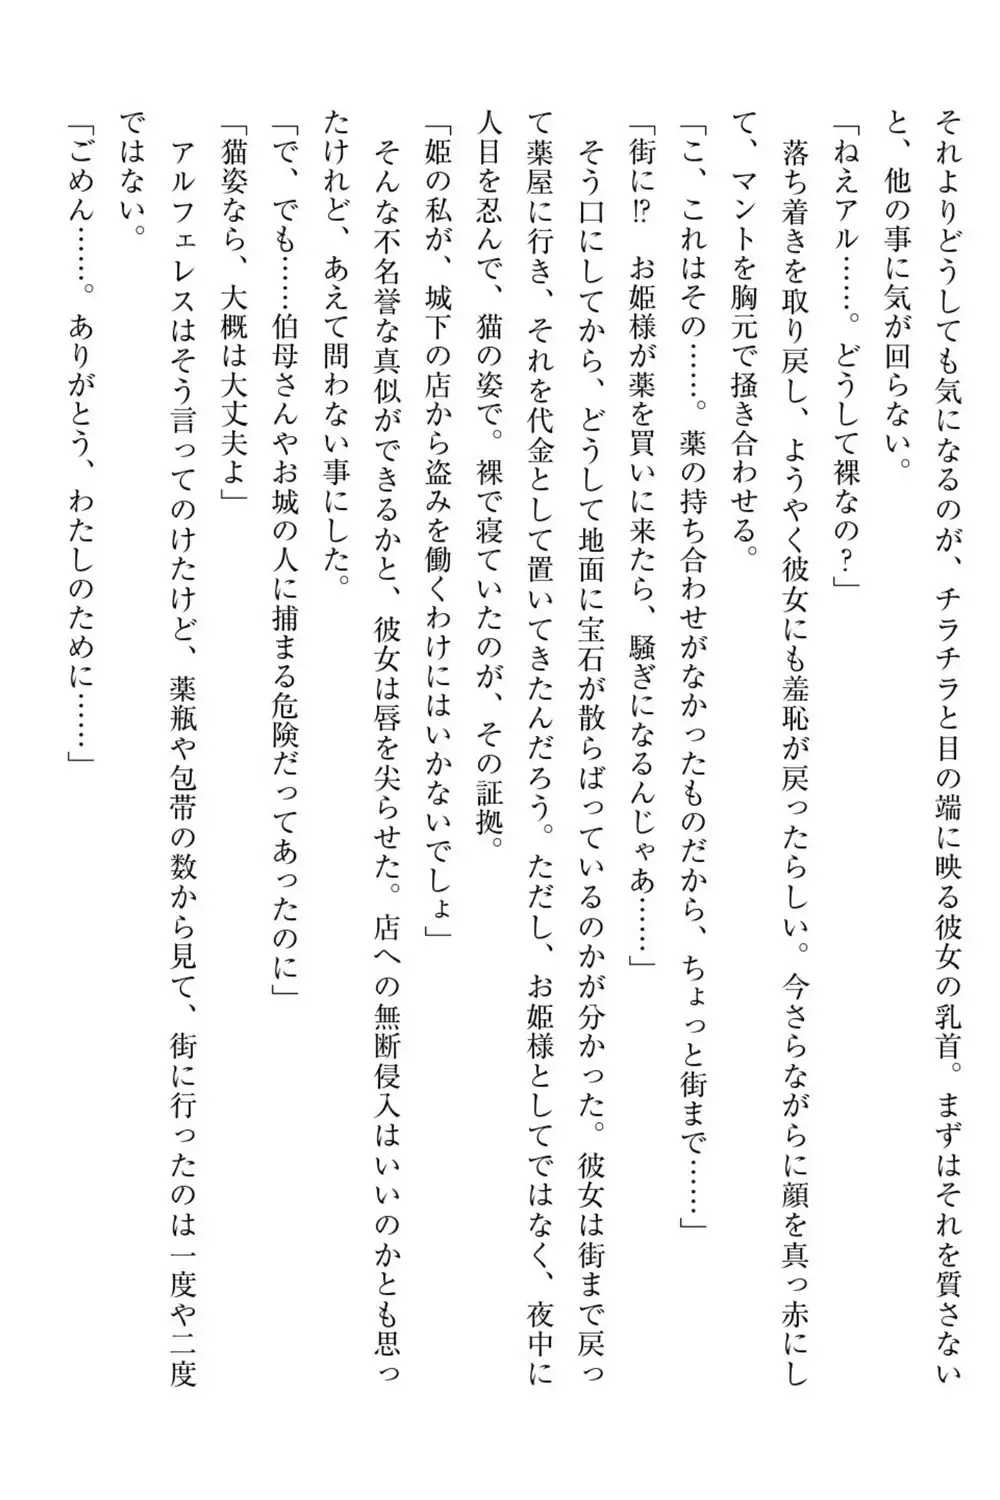 それよりどうしても気になるのが、チラチラと目の端に映る彼女の乳首。まずはそれを質さない
と、他の事に気が回らない。
「ねえアル……。どうして裸なの？」
　落ち着きを取り戻し、ようやく彼女にも羞恥が戻ったらしい。今さらながらに顔を真っ赤にし
て、マントを胸元で掻き合わせる。
「こ、これはその……。薬の持ち合わせがなかったものだから、ちょっと街まで……」
「街に!?　お姫様が薬を買いに来たら、騒ぎになるんじゃあ……」
　そう口にしてから、どうして地面に宝石が散らばっているのかが分かった。彼女は街まで戻っ
て薬屋に行き、それを代金として置いてきたんだろう。ただし、お姫様としてではなく、夜中に
人目を忍んで、猫の姿で。裸で寝ていたのが、その証拠。
「姫の私が、城下の店から盗みを働くわけにはいかないでしょ」
　そんな不名誉な真似ができるかと、彼女は唇を尖らせた。店への無断侵入はいいのかとも思っ
たけれど、あえて問わない事にした。
「で、でも……伯母さんやお城の人に捕まる危険だってあったのに」
「猫姿なら、大概は大丈夫よ」
　アルフェレスはそう言ってのけたけど、薬瓶や包帯の数から見て、街に行ったのは一度や二度
ではない。
「ごめん……。ありがとう、わたしのために……」